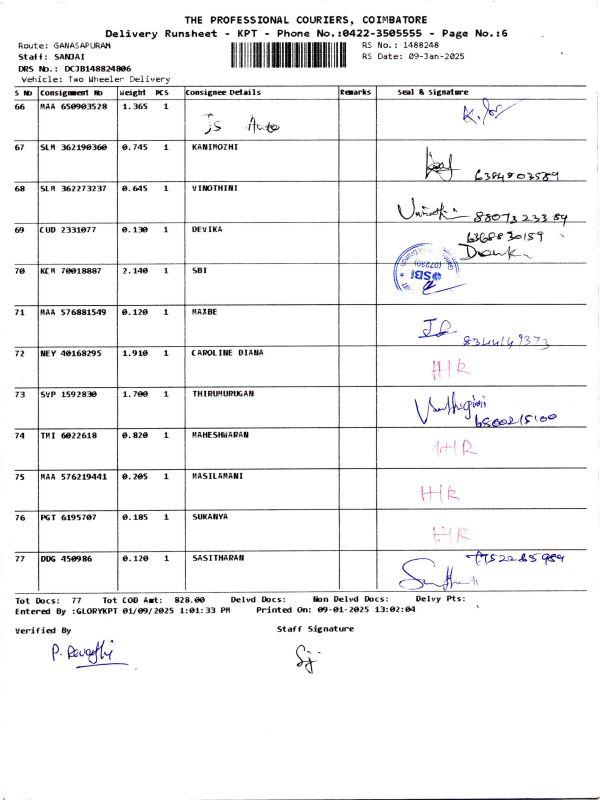 THE PROFESSIONAL COURIERS, COIMBATORE
Delivery Runsheet - KPT - Phone No.:0422-3505555 - Page No.:6
Route: GANASAPURAM RS No.: 1488248
Staff: SANJAI RS Date: 09-Jan-2025
DRS No.: DCJB148824806
Vehicle: Two Wheeler Delivery
S No Consignment No Weight PCS Consignee Details Remarks Seal & Signature
66 MAA 650903528 1.365 1
JS Auto
67 SLM 362190360 0.745 1 KANIMOZHI
6384803589
68 SLM 362273237 0.645 1 VINOTHINI
8807323384
69 CUD 2331077 0.130 1 DEVIKA 6368830159
70 KCM 70018887 2.140 1 SBI
SBI
71 MAA 576881549 0.120 1 MAXBE
8344149373
72 NEY 40168295 1.910 1 CAROLINE DIANA
HR
73 SVP 1592830 1.700 1 THIRUMURUGAN
74 TMI 6022618 0.820 1 MAHESHWARAN
HR
75 MAA 576219441 0.205 1 MASILAMANI
HR
76 PGT 6195707 0.185 1 SUKANYA
HR
77 DDG 450986 0.120 1 SASITHARAN
Tot Docs: 77 Tot COD Amt: 828.00 Delvd Docs: Non Delvd Docs: Delvy Pts:
Entered By :GLORYKPT 01/09/2025 1:01:33 PM Printed On: 09-01-2025 13:02:04
Verified By Staff Signature